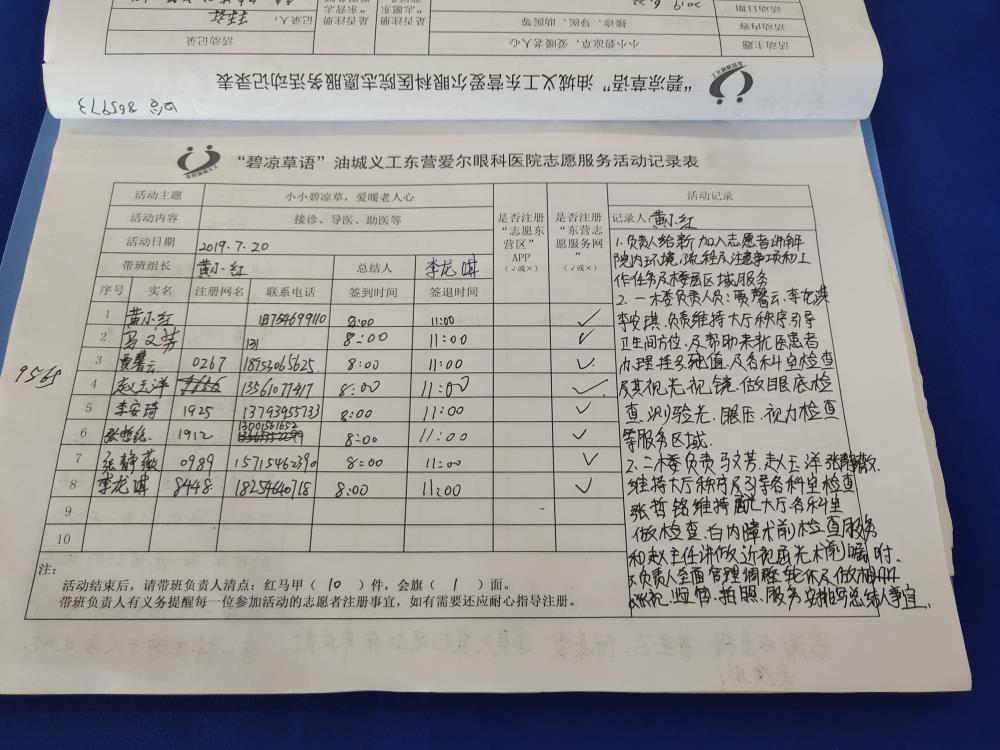 "碧凉草语"油城义工东营爱尔眼科医院志愿服务活动记录表
微信 865973
活动主题 小小碧凉草，爱暖老人心
活动内容 接诊、导医、助医等
活动日期 2019.6.22
活动记录
记录人：
"碧凉草语"油城义工东营爱尔眼科医院志愿服务活动记录表
活动主题 小小碧凉草，爱暖老人心 是否注册"志愿东营区"APP（√或×） 是否注册"东营志愿服务网（√或×） 活动记录
活动内容 接诊、导医、助医等
活动日期 2019.7.20
带班组长 黄小红 总结人 李龙琪
序号 实名 注册网名 联系电话 签到时间 签退时间
1 黄小红 18754699110 8:00 11:00 ✓
2 马文芳 131 8:00 11:00 ✓
3 贾馨云 0267 18953065625 8:00 11:00 ✓
9568
4 赵玉洋 13561077417 8:00 11:00 ✓
5 李安琦 1925 13793955733 8:00 11:00 ✓
6 张哲铭 1912 13001561652 8:00 11:00 ✓
7 张静薇 0989 15715462390 8:00 11:00 ✓
8 李龙琪 8448 18254640718 8:00 11:00 ✓
9
10
注：
活动结束后，请带班负责人清点：红马甲（10）件，会旗（1）面。
带班负责人有义务提醒每一位参加活动的志愿者注册事宜，如有需要还应耐心指导注册。
记录人 黄小红
1.负责人给新加入志愿者讲解
院内环境，流程及注意事项和工
作任务及楼层区域服务
2.一楼负责人员：贾馨云.李龙琪
李安琪.负责维持大厅秩序.引导
卫生间方位，及帮助来就医患者
办理挂号.充值.及各科室检查
及其视光.视镜.做眼底检
查，测验光、眼压.视力检查
等服务区域.
2.二楼负责马文芳.赵玉洋张静薇.
维持大厅秩序及引导各科室检查
张哲铭维持大厅各科室
做检查.白内障术前检查服务
和赵主任讲做近视激光术前嘱咐.
3.负责人全面管理调整轮休及做
监督.拍照.服务安排写总结人事宜.